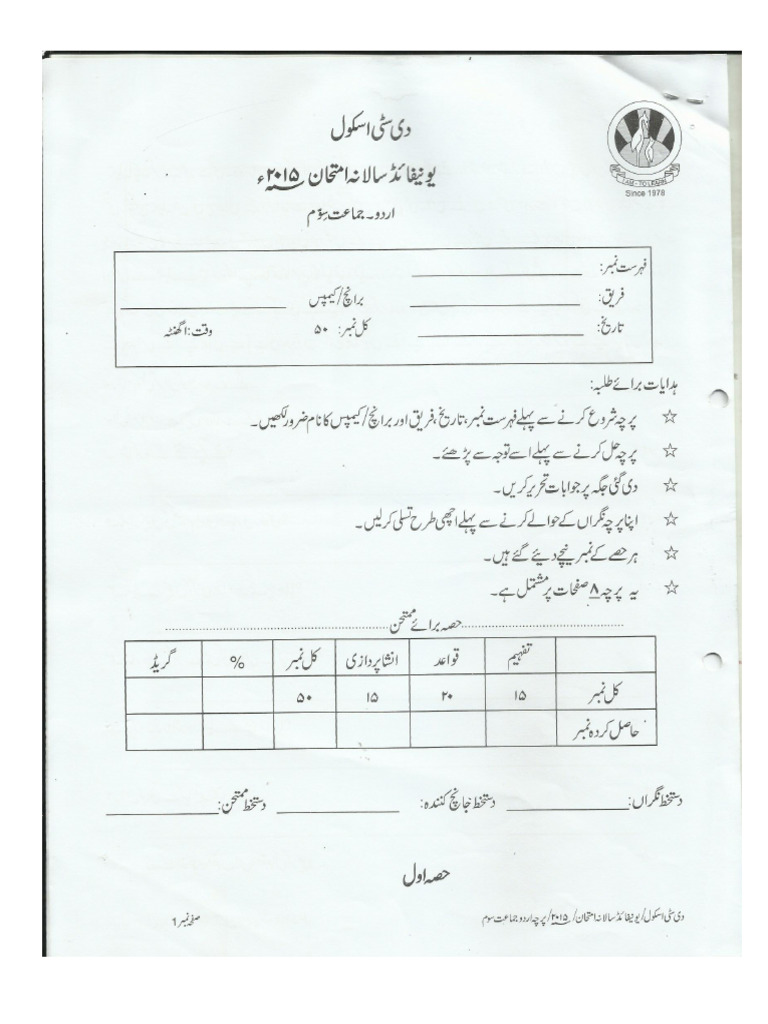 دی سٹی اسکول
یونیفائڈ سالانہ امتحان ۲۰۱۵ء
اردو۔ جماعت سوّم
I AM - TO LEARN
Since 1978
فہرست نمبر: ____________
فریق: ____________ برانچ/کیمپس ____________
تاریخ: ____________ کل نمبر: ۵۰ وقت: ۱گھنٹہ
ہدایات برائے طلبہ:
☆ پرچہ شروع کرنے سے پہلے فہرست نمبر، تاریخ، فریق اور برانچ/کیمپس کا نام ضرور لکھیں۔
☆ پرچہ حل کرنے سے پہلے اسے توجہ سے پڑھئے۔
☆ دی گئی جگہ پر جوابات تحریر کریں۔
☆ اپنا پرچہ نگراں کے حوالے کرنے سے پہلے اچھی طرح تسلی کرلیں۔
☆ ہر حصے کے نمبر نیچے دیئے گئے ہیں۔
☆ یہ پرچہ ۸ صفحات پر مشتمل ہے۔
............حصہ برائے ممتحن............
تفہیم قواعد انشا پردازی کل نمبر % گریڈ
کل نمبر ۱۵ ۲۰ ۱۵ ۵۰
حاصل کردہ نمبر
دستخط نگراں: ____________ دستخط جانچ کنندہ: ____________ دستخط ممتحن: ____________
حصہ اول
دی سٹی اسکول/یونیفائڈ سالانہ امتحان/۲۰۱۵/پرچہ اردو جماعت سوم صفحہ نمبر 1